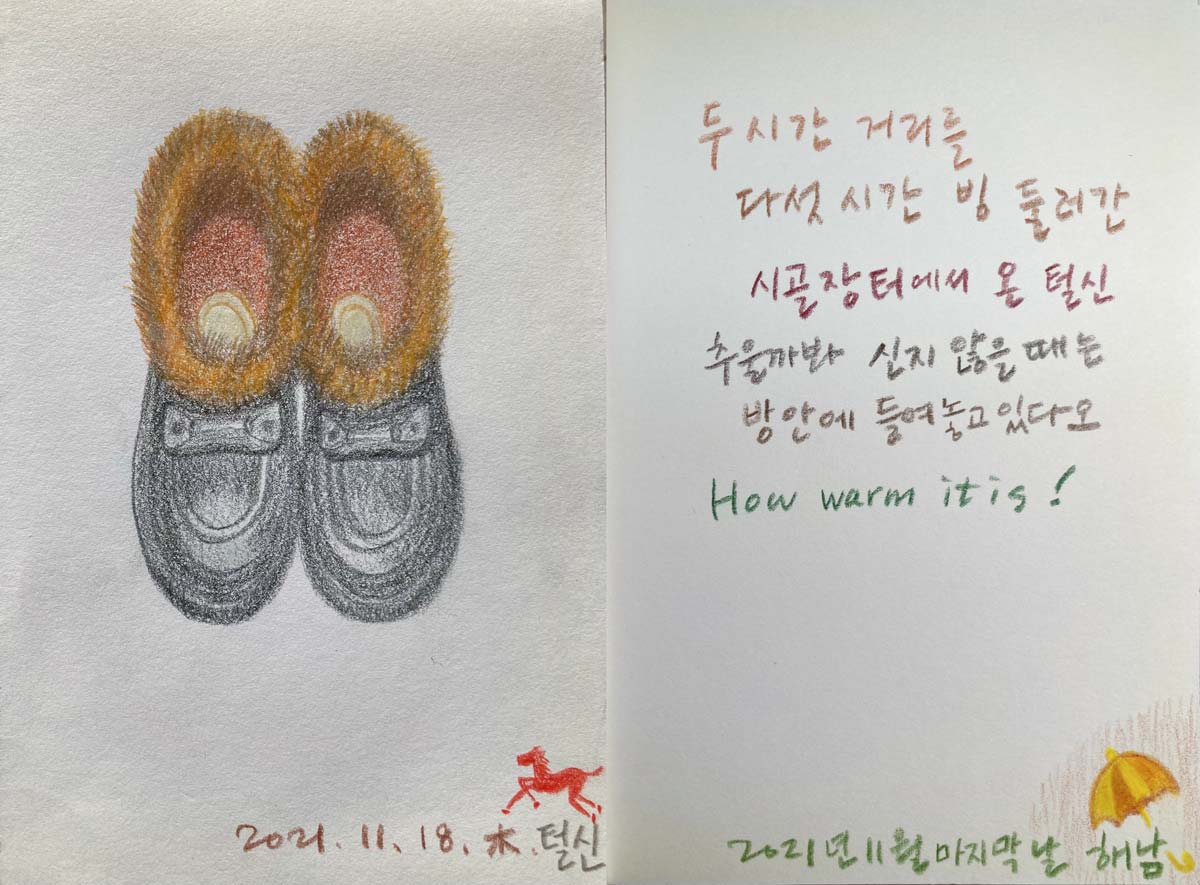 2021. 11. 18. 木. 털신
두 시간 거리를
다섯 시간 빙 둘러간
시골장터에서 온 털신
추울까봐 신지 않을 때는
방안에 들여놓고 있다오
How warm it is!
2021년 11월 마지막 날 해남